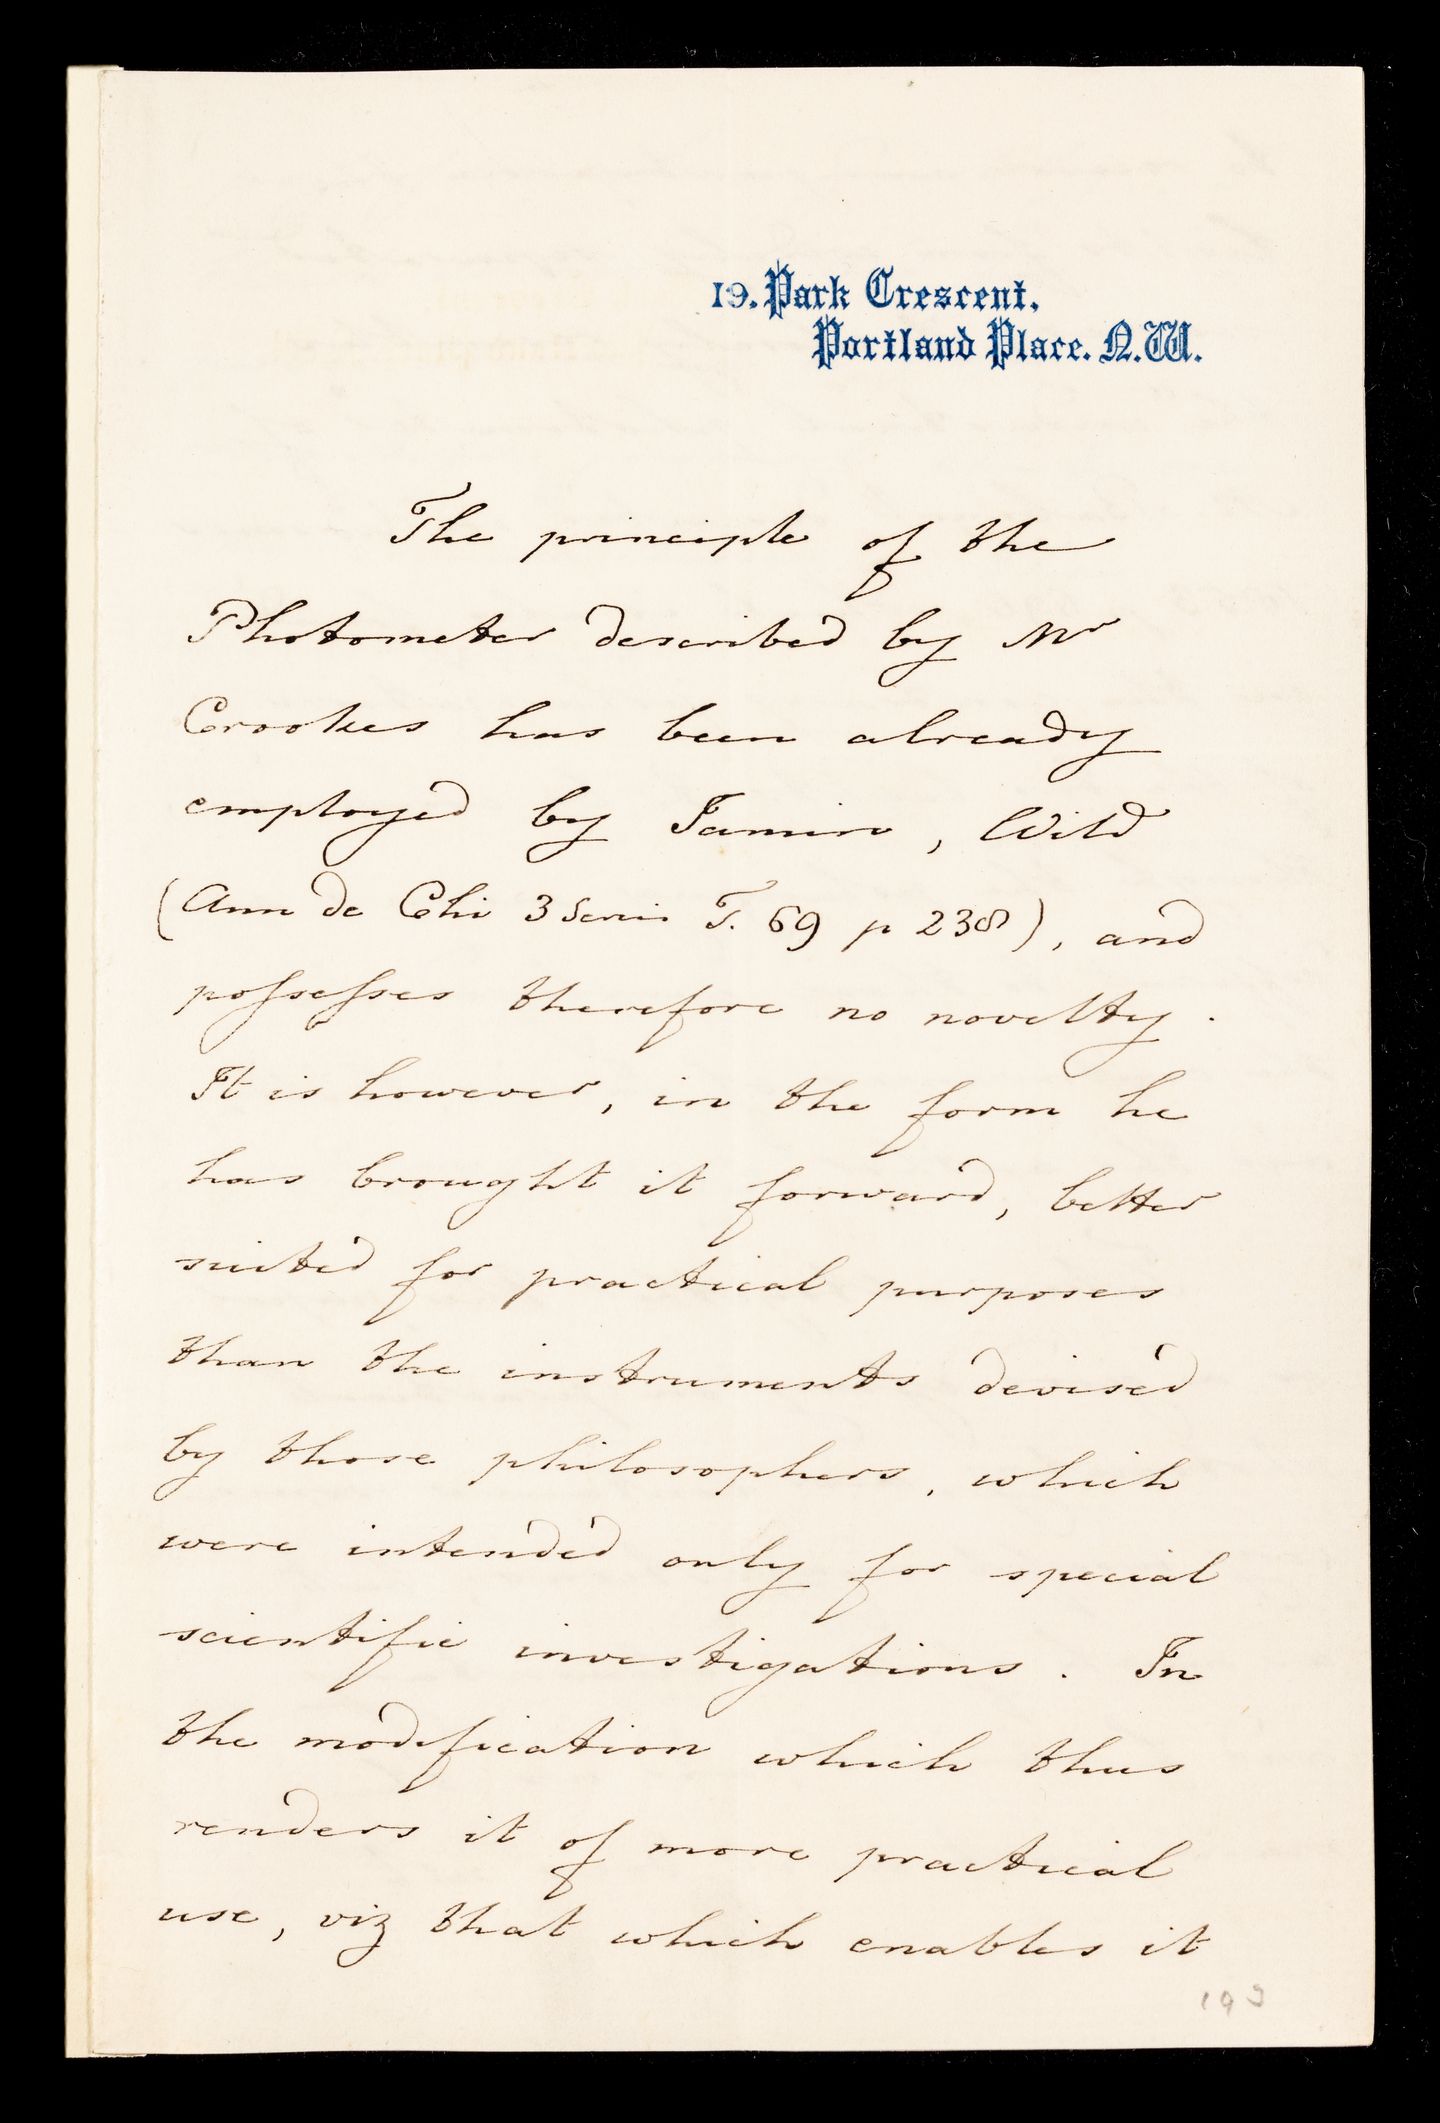 19. Park Crescent,
Portland Place. N.W.
The principle of the
Photometer described by Mr
Crookes has been already
employed by Jamin, Wild
(Ann de Chi 3 Serie T. 69 p 238), and
possesses therefore no novelty.
It is however, in the form he
has brought it forward, better
suited for practical purposes
than the instruments devised
by those philosophers, which
were intended only for special
scientific investigations. In
the modification which thus
renders it of more practical
use, viz that which enables it
193